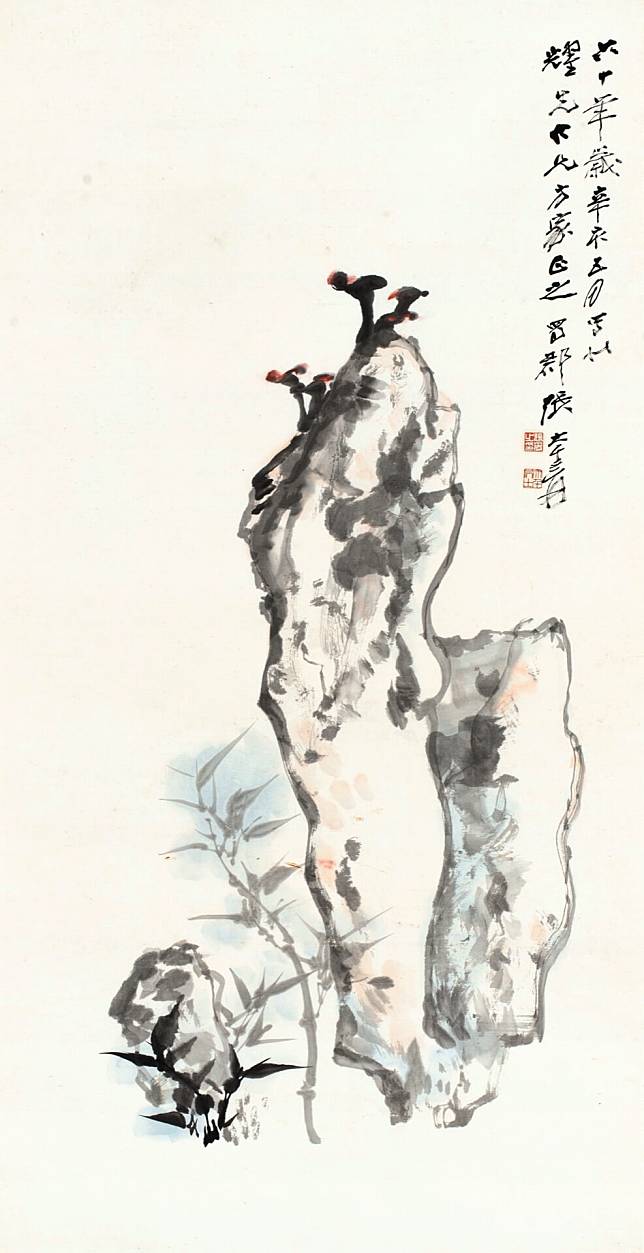 六十年歲辛亥五月寫似
耀先大兄方家正之 蜀郡張大千爰